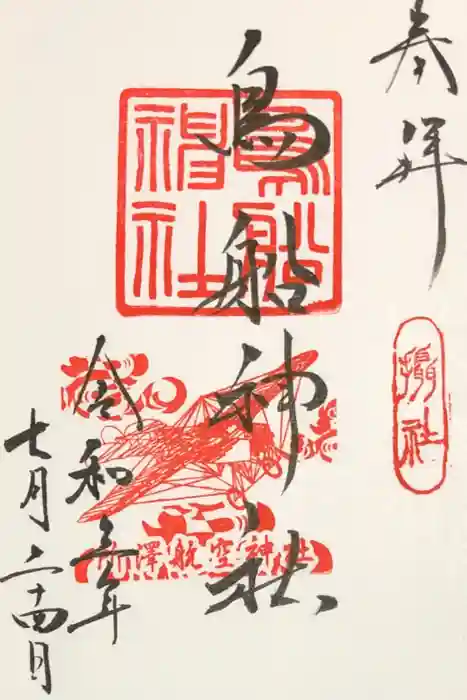 奉拝
攝社
鳥船神社
鳥船神社
所澤航空神社
令和三年
七月二十四日